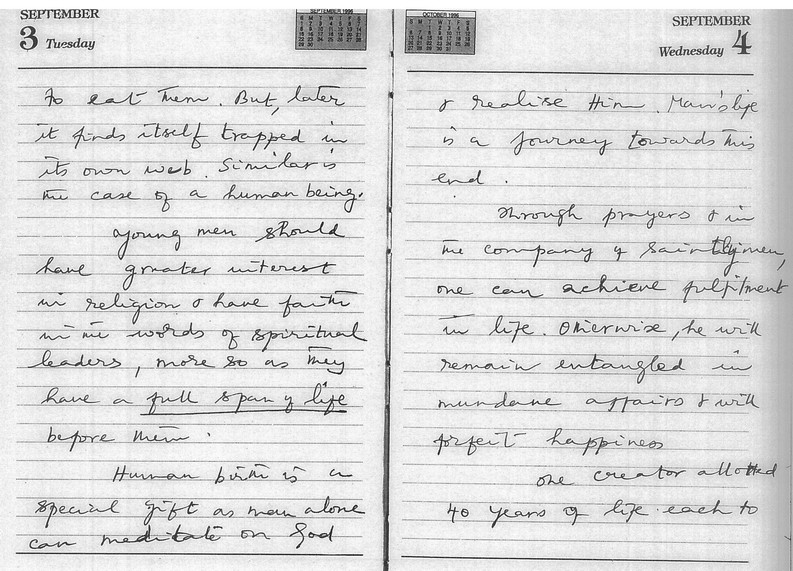 SEPTEMBER
3 Tuesday
SEPTEMBER 1996
to eat them. But, later
it finds itself trapped in
its own web. Similar is
the case of a human being.
young men should
have greater interest
in religion & have faith
in the words of spiritual
leaders, more so as they
have a full span of life
before them.
Human birth is a
special gift as man alone
can meditate on God
OCTOBER 1996
SEPTEMBER
Wednesday 4
& realise Him. Man's life
is a journey towards this
end.
Through prayers & in
the company of saintly men,
one can achieve fulfilment
in life. Otherwise, he will
remain entangled in
mundane affairs & will
forfeit happiness
creator allotted
40 years of life each to